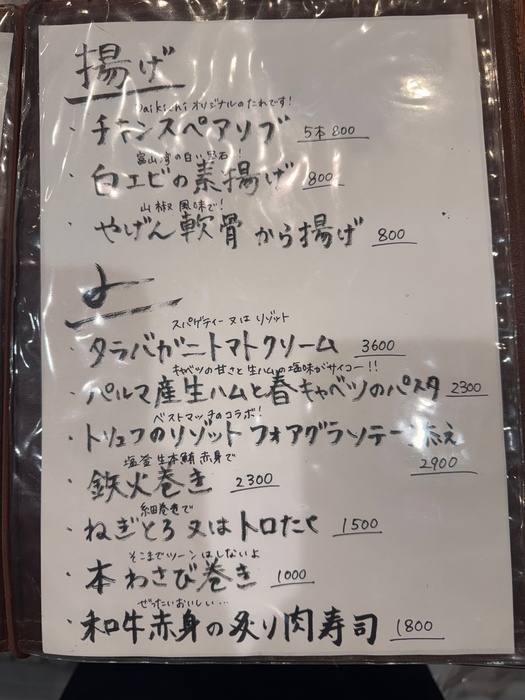 揚げ
Daikichi オリジナルのたれです!
・チキンスペアリブ 5本 800
富山湾の白い宝石!
・白エビの素揚げ 800
山椒風味で!
・やげん軟骨から揚げ 800
スパゲティー又はリゾット
・タラバガニトマトクリーム 3600
キャベツの甘さと生ハムの塩味がサイコー!!
・パルマ産生ハムと春キャベツのパスタ 2300
ベストマッチのコラボ!
・トリュフのリゾット フォアグラソテー添え
2900
塩釜生本鮪赤身で
・鉄火巻き 2300
細巻きで
・ねぎとろ又はトロたく 1500
そこまでツーンはしないよ
・本わさび巻き 1000
ぜったいおいしい…
・和牛赤身の炙り肉寿司 1800